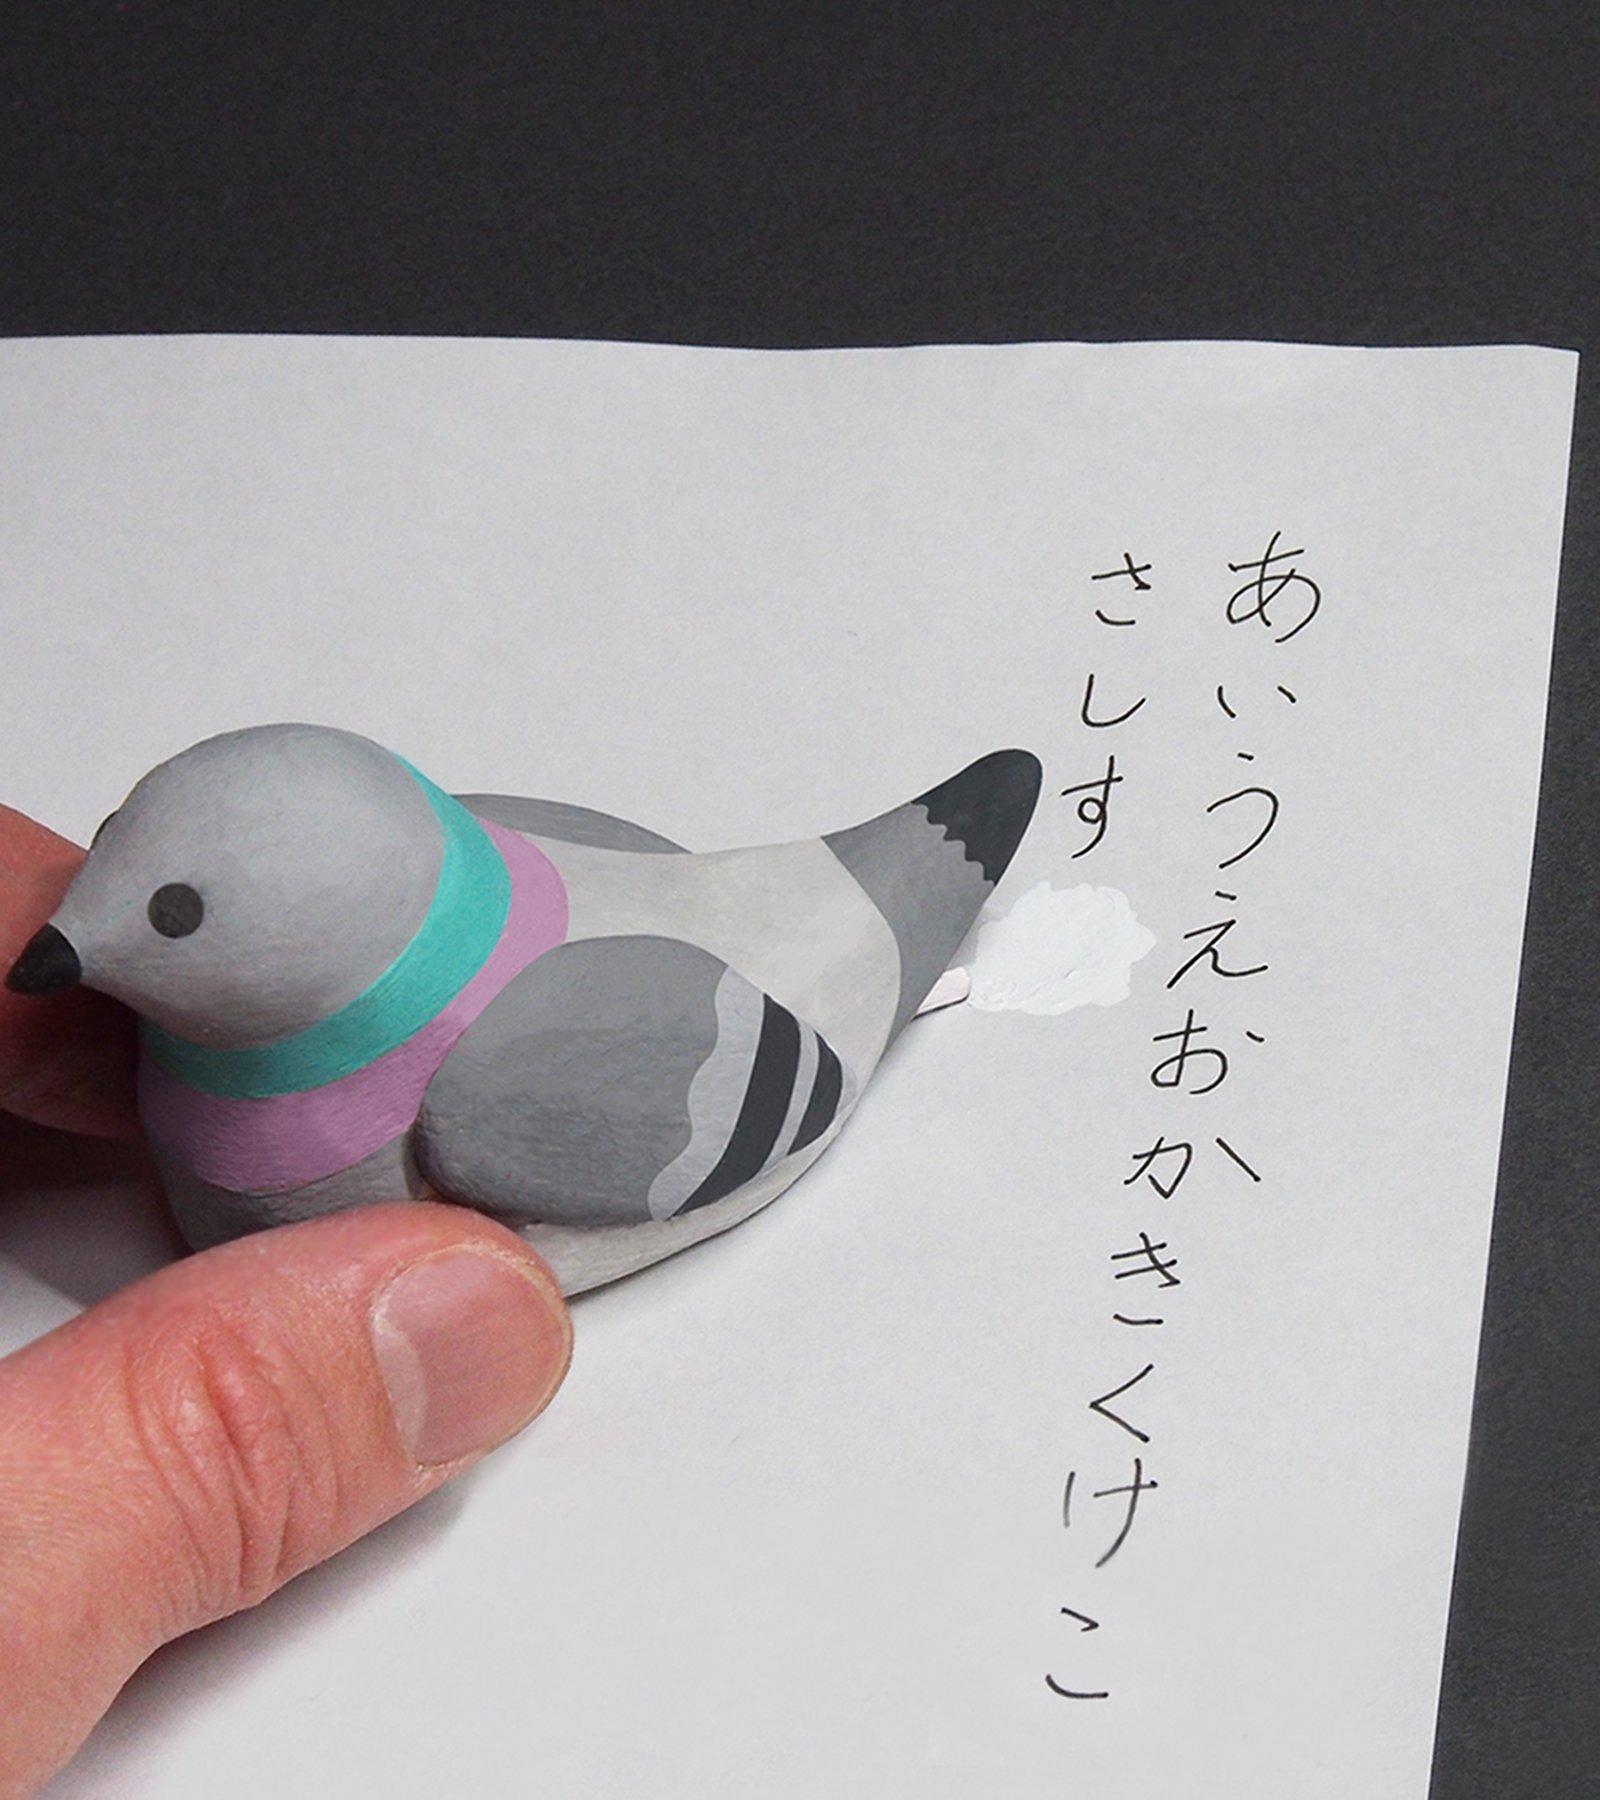 あいうえおかきくけこ
さしす